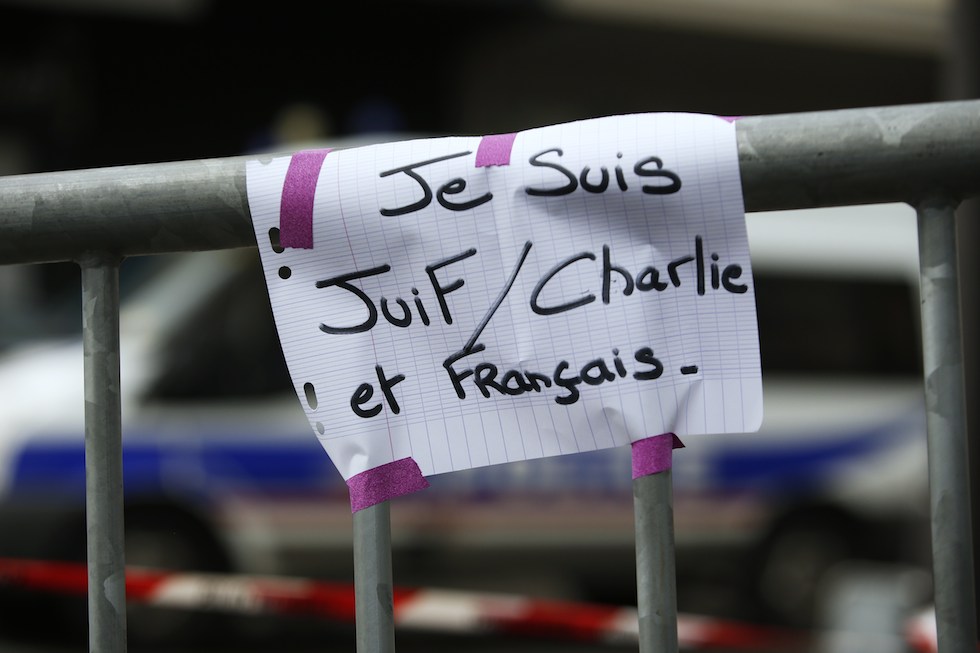 Je Suis
Juif / Charlie
et Français_